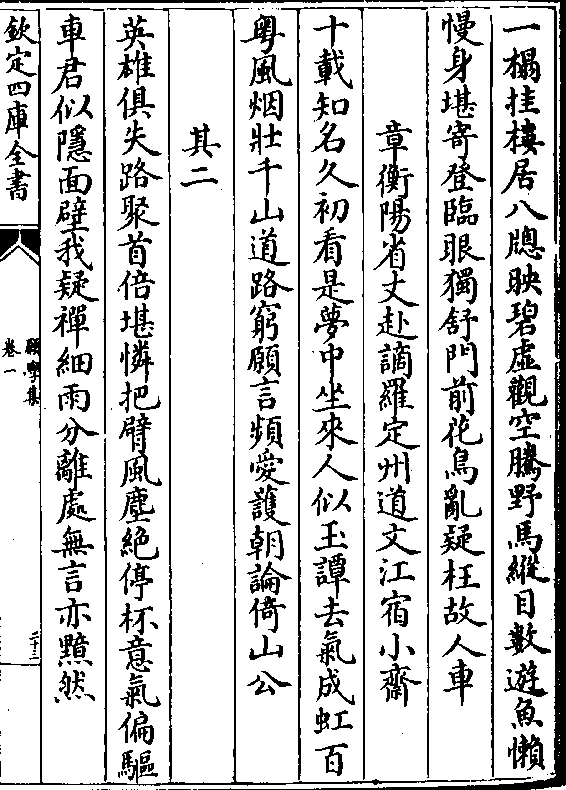 一榻挂樓居八牕映碧虛觀空騰野馬縱目數遊魚懶
慢身堪寄登臨眼獨舒門前花鳥亂疑枉故人車
章衡陽省丈赴謫羅定州道文江宿小齋
十載知名久初看是夢中坐來人似玉譚去氣成虹百
粵風烟壯千山道路窮願言頻愛護朝論倚山公
其二
英雄俱失路聚首倍堪憐把臂風塵絶停杯意氣偏驅
車君似隱面壁我疑禪細雨分離處無言亦黯然
欽定四庫全書
願學集
卷一
二十三